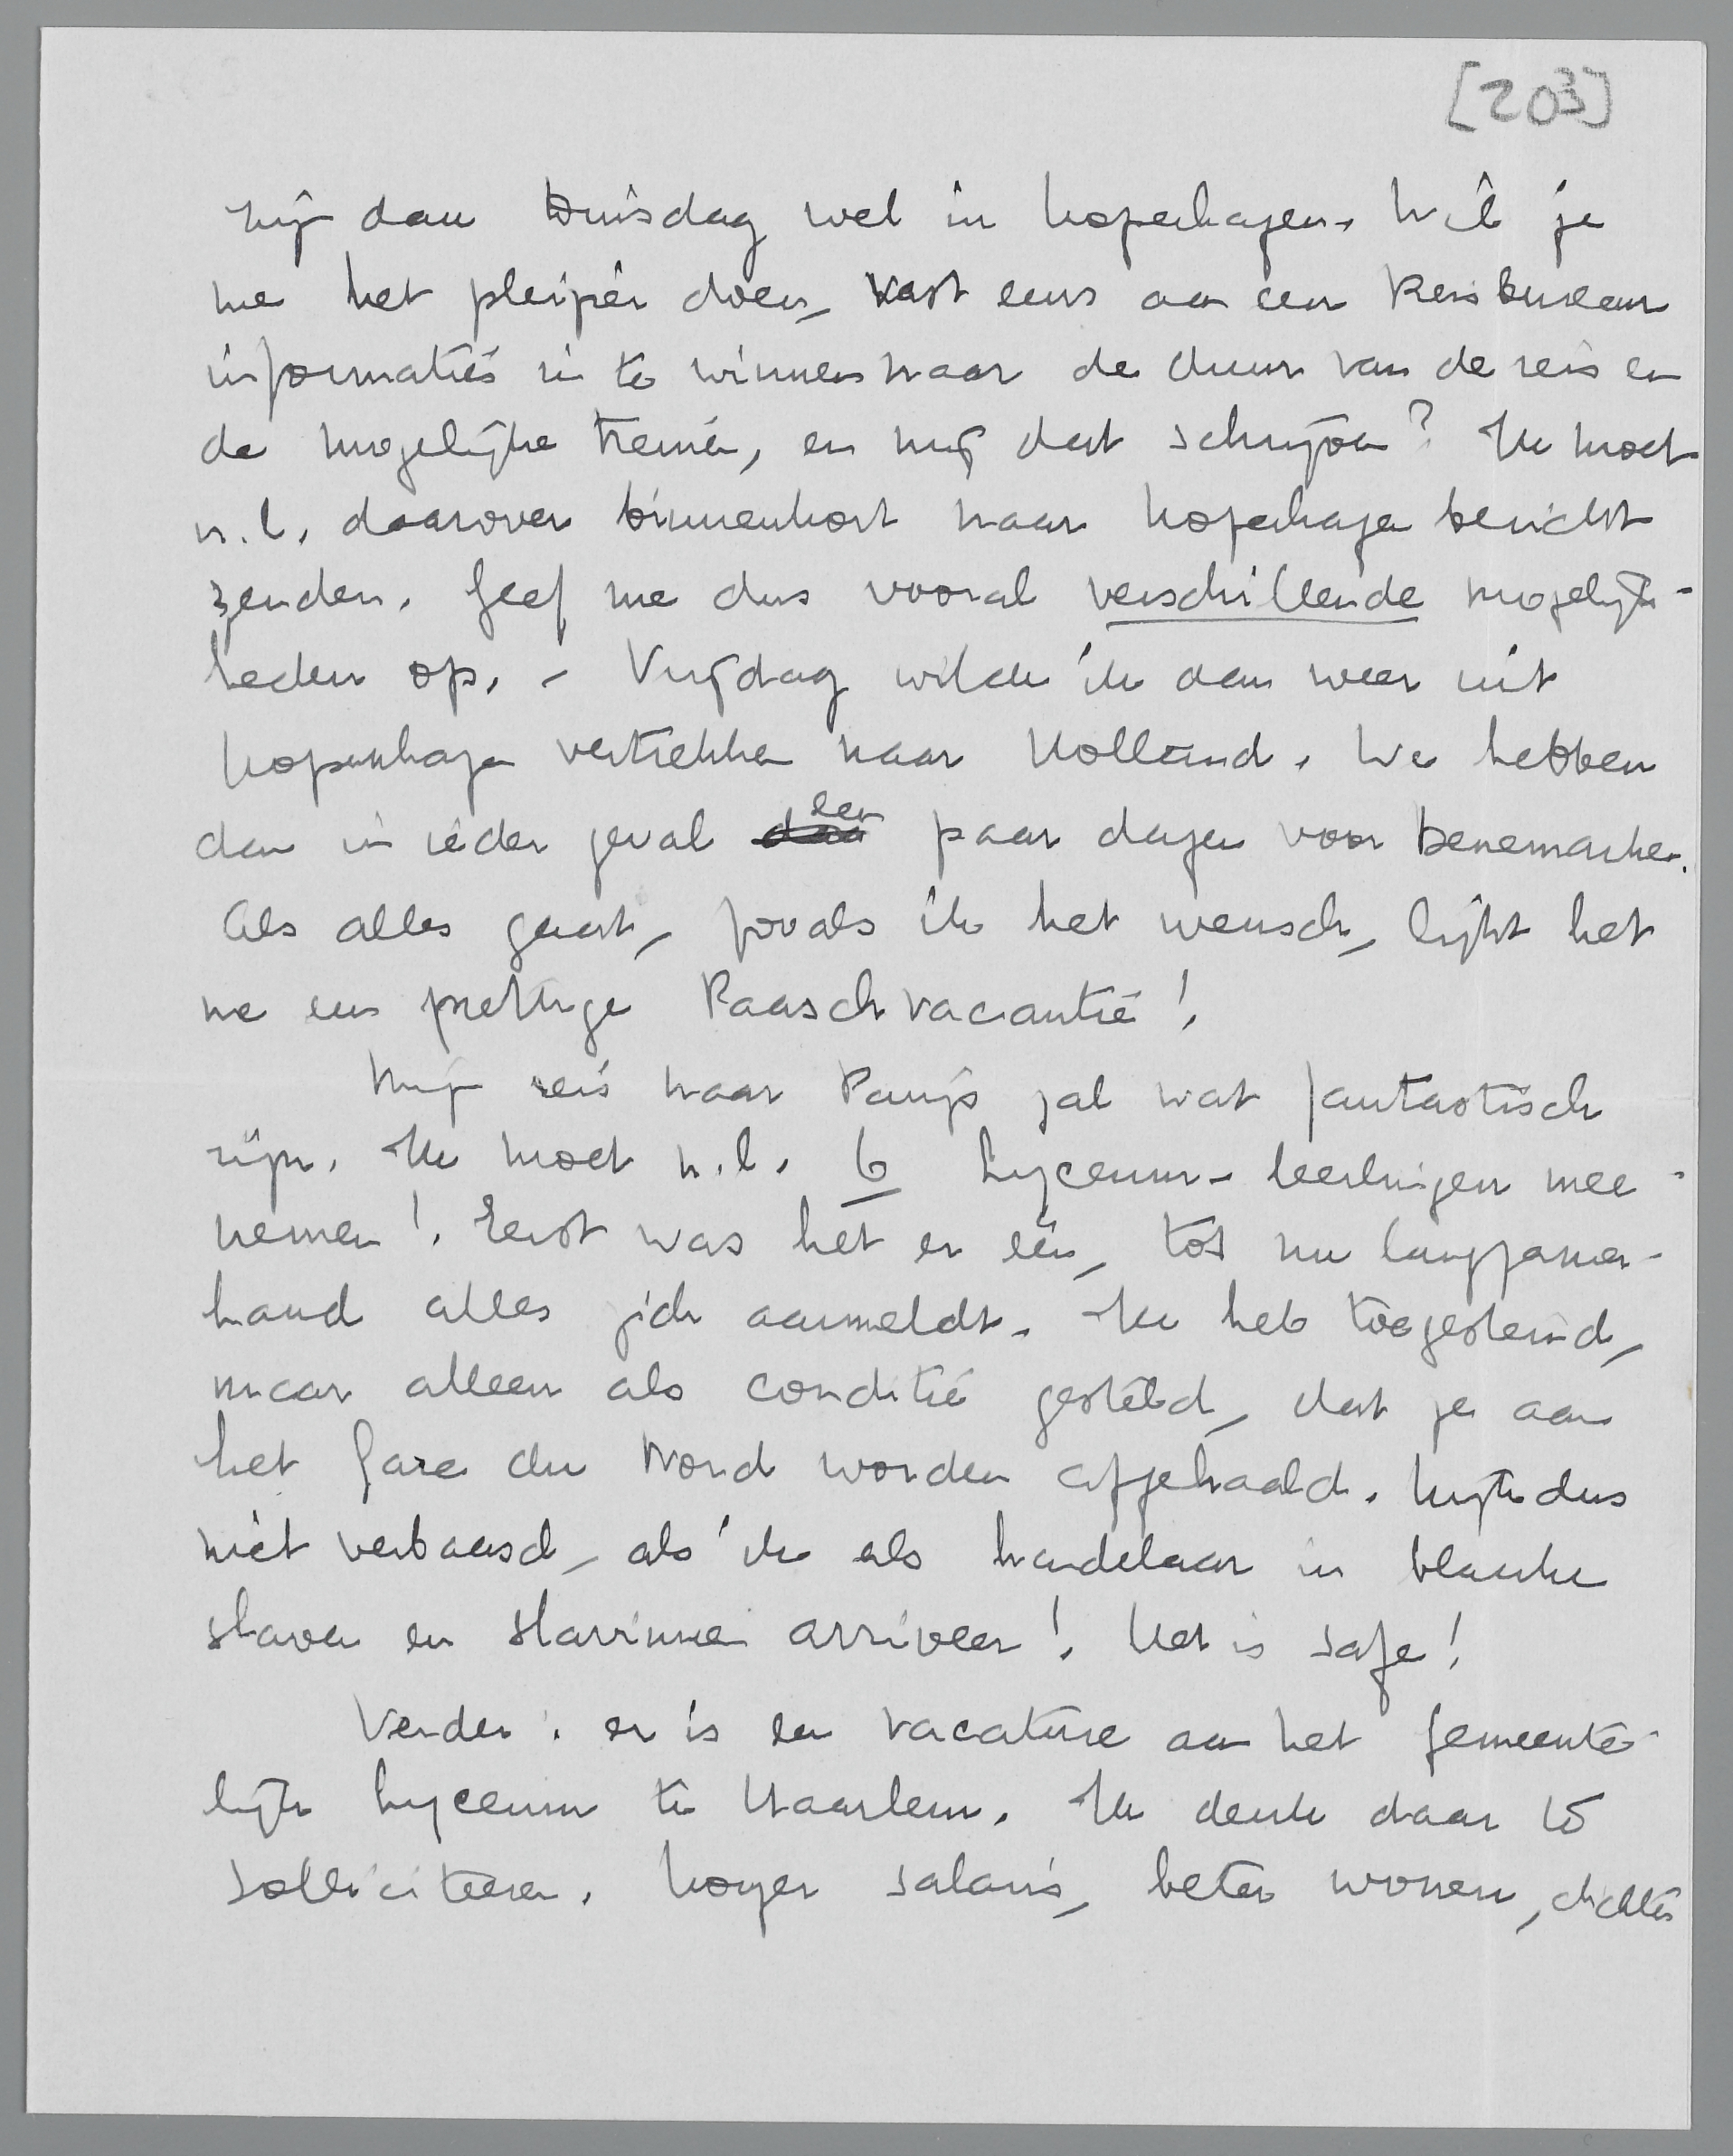 [203]
zijn dan Dinsdag wel in Kopenhagen. Wil je
me het pleizier doen, vast eens aan een Reisbureau
informaties in te winnen naar de duur van de reis en
de mogelijke treinen, en mij dat schrijven? Ik moet
n.l. daarover binnenkort naar Kopenhagen bericht
zenden. Geef me dus vooral verschillende mogelijk-
heden op. - Vrijdag wilde ik dan weer uit
Kopenhagen vertrekken naar Holland. We hebben
dan in ieder geval een paar dagen voor Denemarken.
Als alles gaat, zooals ik het wensch, lijkt het
me een prettige Paaschvacantie!
Mijn reis naar Parijs zal wat fantastisch
zijn. Ik moet n.l. 6 Lyceum-leerlingen mee-
nemen! Eerst was het er één, tot nu langzamer-
hand alles zich aanmeldt. Ik heb toegestemd,
maar alleen als conditie gesteld, dat ze aan
het Gare du Nord worden afgehaald. Kijk dus
niet verbaasd, als ik als handelaar in blanke
slaven en slavinnen arriveer! Het is safe!
Verder: er is een vacature aan het Gemeente-
lijk Lyceum te Haarlem. Ik denk daar te
solliciteeren. Hooger salaris, beter wonen, dichter